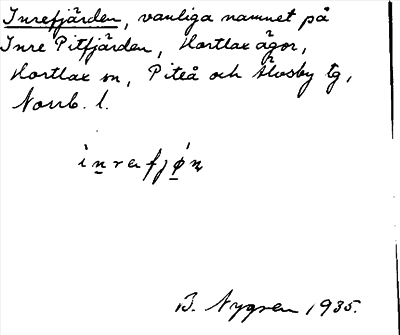 Inrefjärden, vanliga namnet på
Inre Pitfjärden, Hortlax ägor,
Hortlax sn, Piteå och Älvsby tg,
Norrb. l.
B. Nygren 1935.